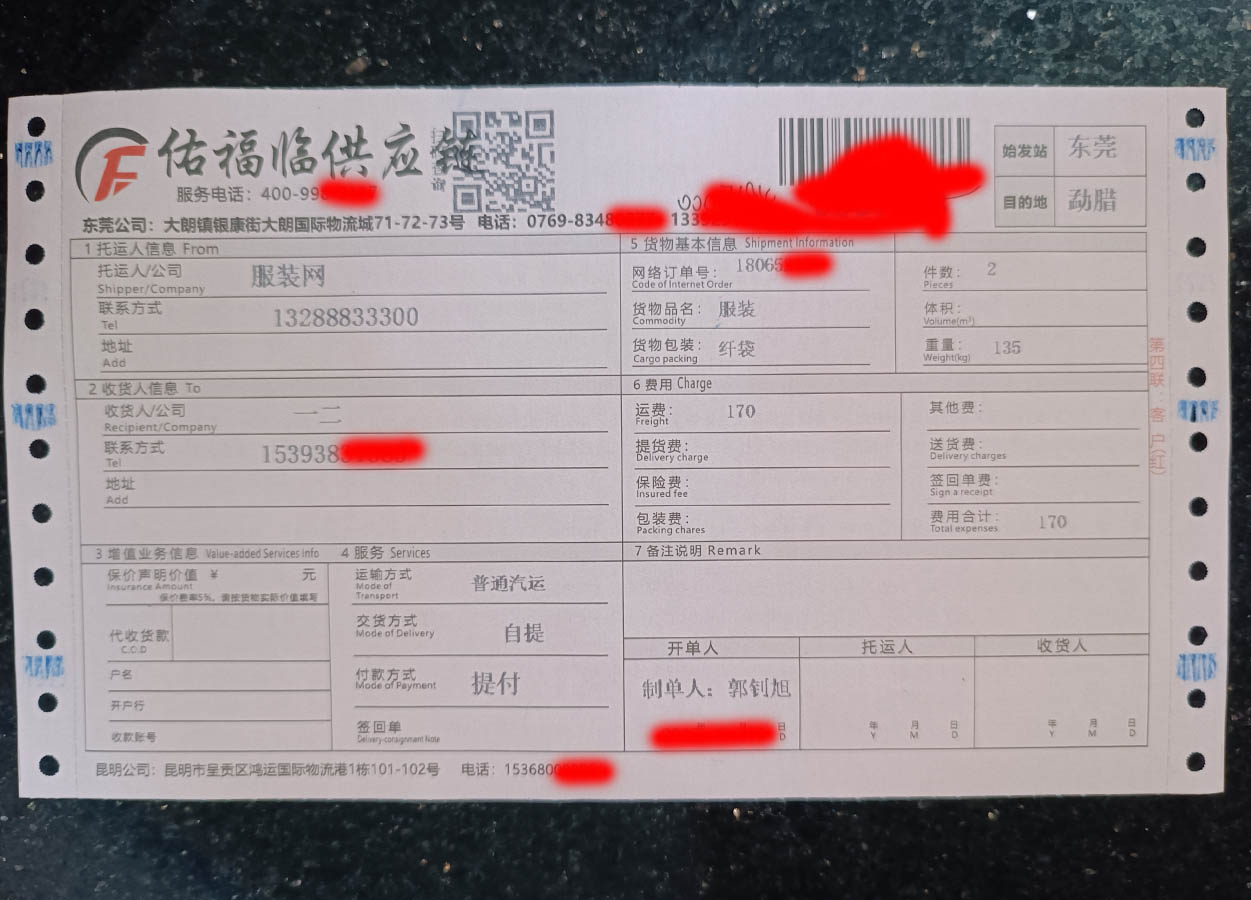 佑福临供应链
服务电话：400-99
东莞公司：大朗镇银康街大朗国际物流城71-72-73号 电话：0769-8348 1339
始发站 东莞
目的地 勐腊
1 托运人信息 From
托运人/公司 服装网
Shipper/Company
联系方式 13288833300
Tel
地址
Add
2 收货人信息 To
收货人/公司 一二
Recipient/Company
联系方式 153938
Tel
地址
Add
3 增值业务信息 Value-added Services info
保价声明价值 ￥ 元
Insurance Amount
保价费率5‰，请按货物实际价值填写
代收货款
C.O.D
户名
开户行
收款账号
4 服务 Services
运输方式 普通汽运
Mode of
Transport
交货方式 自提
Mode of Delivery
付款方式 提付
Mode of Payment
签回单
Delivery-consignment Note
5 货物基本信息 Shipment Information
网络订单号： 18065
Code of Internet Order
货物品名： 服装
Commodity
货物包装： 纤袋
Cargo packing
件数： 2
Pieces
体积：
Volume(m³)
重量： 135
Weight(kg)
6 费用 Charge
运费： 170
Freight
提货费：
Delivery charge
保险费：
Insured fee
包装费：
Packing chares
其他费：
送货费：
Delivery charges
签回单费：
Sign a receipt
费用合计： 170
Total expenses
7 备注说明 Remark
开单人 托运人 收货人
制单人：郭钊旭
年 月 日 年 月 日 年 月 日
D Y M D Y M D
第四联：客户(红)
昆明公司：昆明市呈贡区鸿运国际物流港1栋101-102号 电话：153680